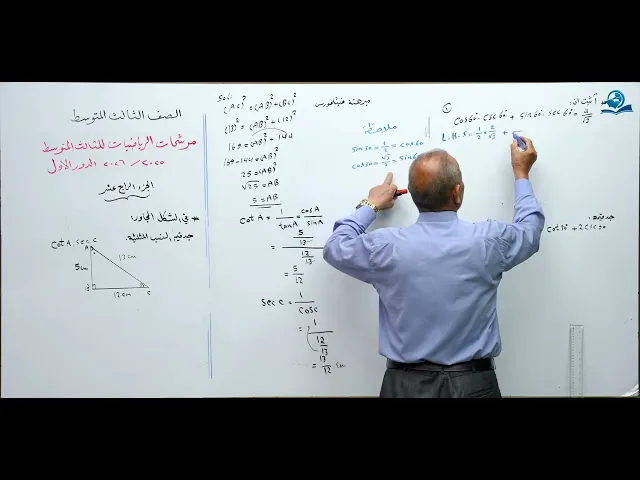 الصف الثالث المتوسط
مرشحات الرياضيات للثالث المتوسط
٢٠٢٥ / ٢٠٢٦ الدور الأول
الجزء الرابع عشر
* في الشكل المجاور:
جد قيم النسب المثلثية:
cot A, sec C
A
5cm
13 cm
B
12 cm
C
Sol:
مبرهنة فيثاغورس
(AC)² = (AB)² + (BC)²
(13)² = (AB)² + (12)²
169 = (AB)² + 144
169 - 144 = (AB)²
25 = (AB)²
√25 = AB
5 = AB
cot A = 1/tan A = cos A/sin A
= 5/13 / 12/13
= 5/12
sec C = 1/cos C
= 1 / 12/13
= 13/12 cm
ملاحظة:
sin 30 = 1/2 = cos 60
cos 30 = √3/2 = sin 6
أثبت أن:
cos 60 . csc 60 + sin 60 . sec 60 = 4/√3
L.H.S = 1/2 × 2/√3 +
جد قيمة: